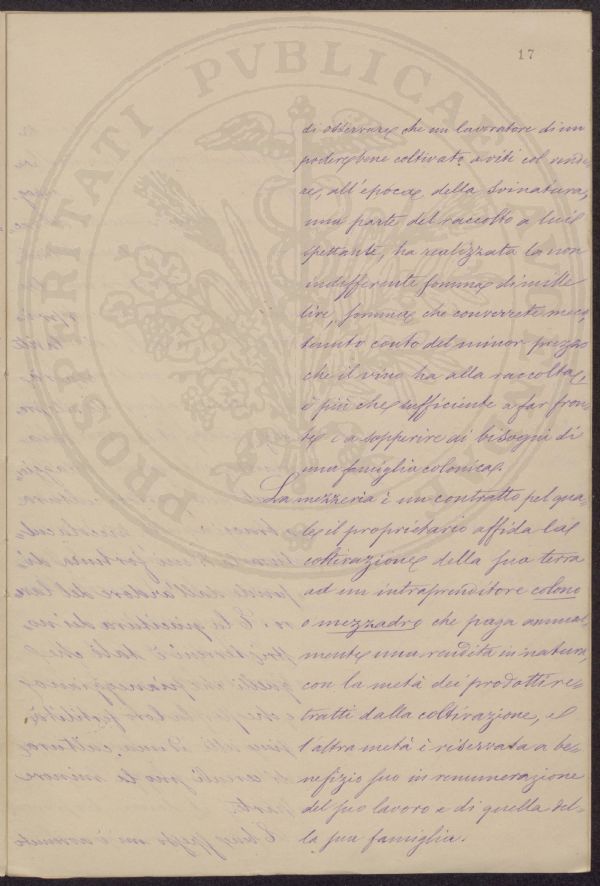 17
PROSPERITATI PVBLICAE
di osservare che un lavoratore di un
podere bene coltivato a viti col vende
re, all'epoca della svinatura,
una parte del raccolto a lui
spettante, ha realizzata la non
indifferente somma di mille
lire, somma che converrete meco,
tenuto conto del minor prezzo
che il vino ha alla raccolta,
è più che sufficiente a far fron-
te e a sopperire ai bisogni di
una famiglia colonica.
La mezzeria è un contratto pel qua-
le il proprietario affida la
coltivazione della sua terra
ad un intraprenditore colono
o mezzadro che paga annual-
mente una rendita in natura,
con la metà dei prodotti re-
tratti dalla coltivazione, e
l'altra metà è riservata a be-
nefizio suo in remunerazione
del suo lavoro e di quella del-
la sua famiglia.